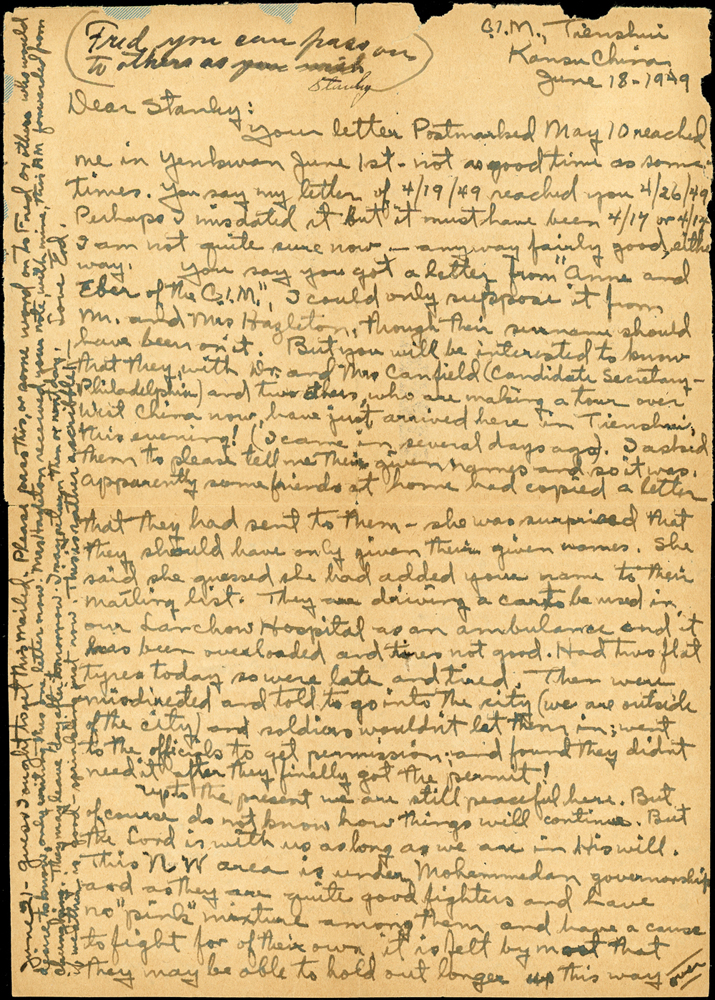 (Fred, you can pass on
to others as you wish
Stanley)
C.I.M., Tienshui
Kansu China
June 18-1949
Dear Stanley:
Your letter Postmarked May 10 reached
me in Yenkwan June 1st - not as good time as some-
times. You say my letter of 4/19/49 reached you 4/26/49
Perhaps I misdated it but it must have been 4/17 or 4/14
I am not quite sure now - anyway fairly good, either
way. You say you got a letter from "Anne and
Eber of the C.I.M.", I could only suppose it from
Mr. and Mrs Hazleton, though their surname should
have been on it. But you will be interested to know
that they, with Dr. and Mrs Canfield (Candidate Secretary-
Philadelphia) and two others, who are making a tour over
visit China now, have just arrived here in Tienshui,
this evening! (I came in several days ago). I asked
them to please tell me their given names and so it was.
Apparently some friends at home had copied a letter
that they had sent to them - she was surprised that
they should have only given their given names. She
said she guessed she had added your name to their
mailing list. They are driving a car to be used in
our Lanchow Hospital as an ambulance and it
has been overloaded and tires not good. Had two flat
tyres today so were late and tired. Then were
misdirected and told to go into the city (we are outside
of the city) and soldiers wouldn't let them in; went
to the officials to get permission; and found they didn't
need it after they finally got the permit!
Up to the present we are still peaceful here. But
of course do not know how things will continue. But
the Lord is with us as long as we are in His will.
This N W area is under Mohammedan governorship
and as they are quite good fighters and have
no "pink" mixture among them and have a cause
to fight for of their own it is felt by most that
they may be able to hold out longer up this way over
June 21 - guess I ought to get this mailed. Please pass this, or some word on to Fred or others who would
desire to know only writing this one letter now. Mrs Hazleton received your note, with mine, this AM forwarded from
Chungking. They may leave day after tomorrow. I may return this or next day. Love Ed.
weather is good - now. This is rather a scribble! -